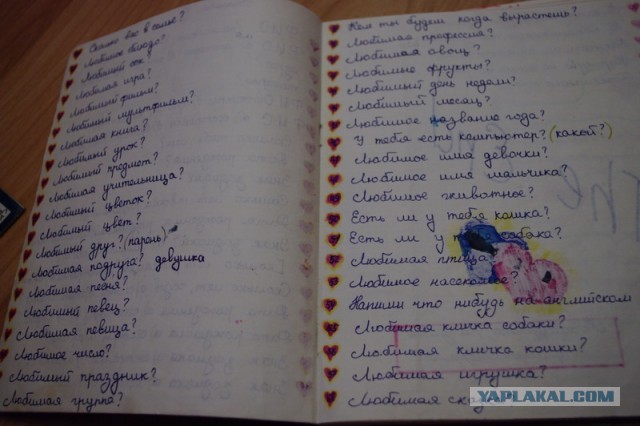 Сколько вас в семье?
Любимое блюдо?
Любимый сок?
Любимая игра?
Любимый фильм?
Любимый мультфильм?
Любимая книга?
Любимый урок?
Любимый предмет?
Любимая учительница?
Любимый цветок?
Любимый цвет?
Любимый друг? (парень)
Любимая подруга? девушка
Любимая песня?
Любимый певец?
Любимая певица?
Любимое число?
Любимый праздник?
Любимая группа?
Кем ты будеш когда вырастешь?
Любимая профессия?
Любимая овощ?
Любимые фрукты?
Любимый день недели?
Любимый месяц?
Любимое название года?
У тебя есть компьютер? (какой?)
Любимое имя девочки?
Любимое имя мальчика?
Любимое животное?
Есть ли у тебя кошка?
Есть ли у тебя собака?
Любимая птица?
Любимое насекомое?
Напиши что нибудь на английском
Любимая кличка собаки?
Любимая кличка кошки?
Любимая игрушка?
Любимая
YAPLAKAL.COM